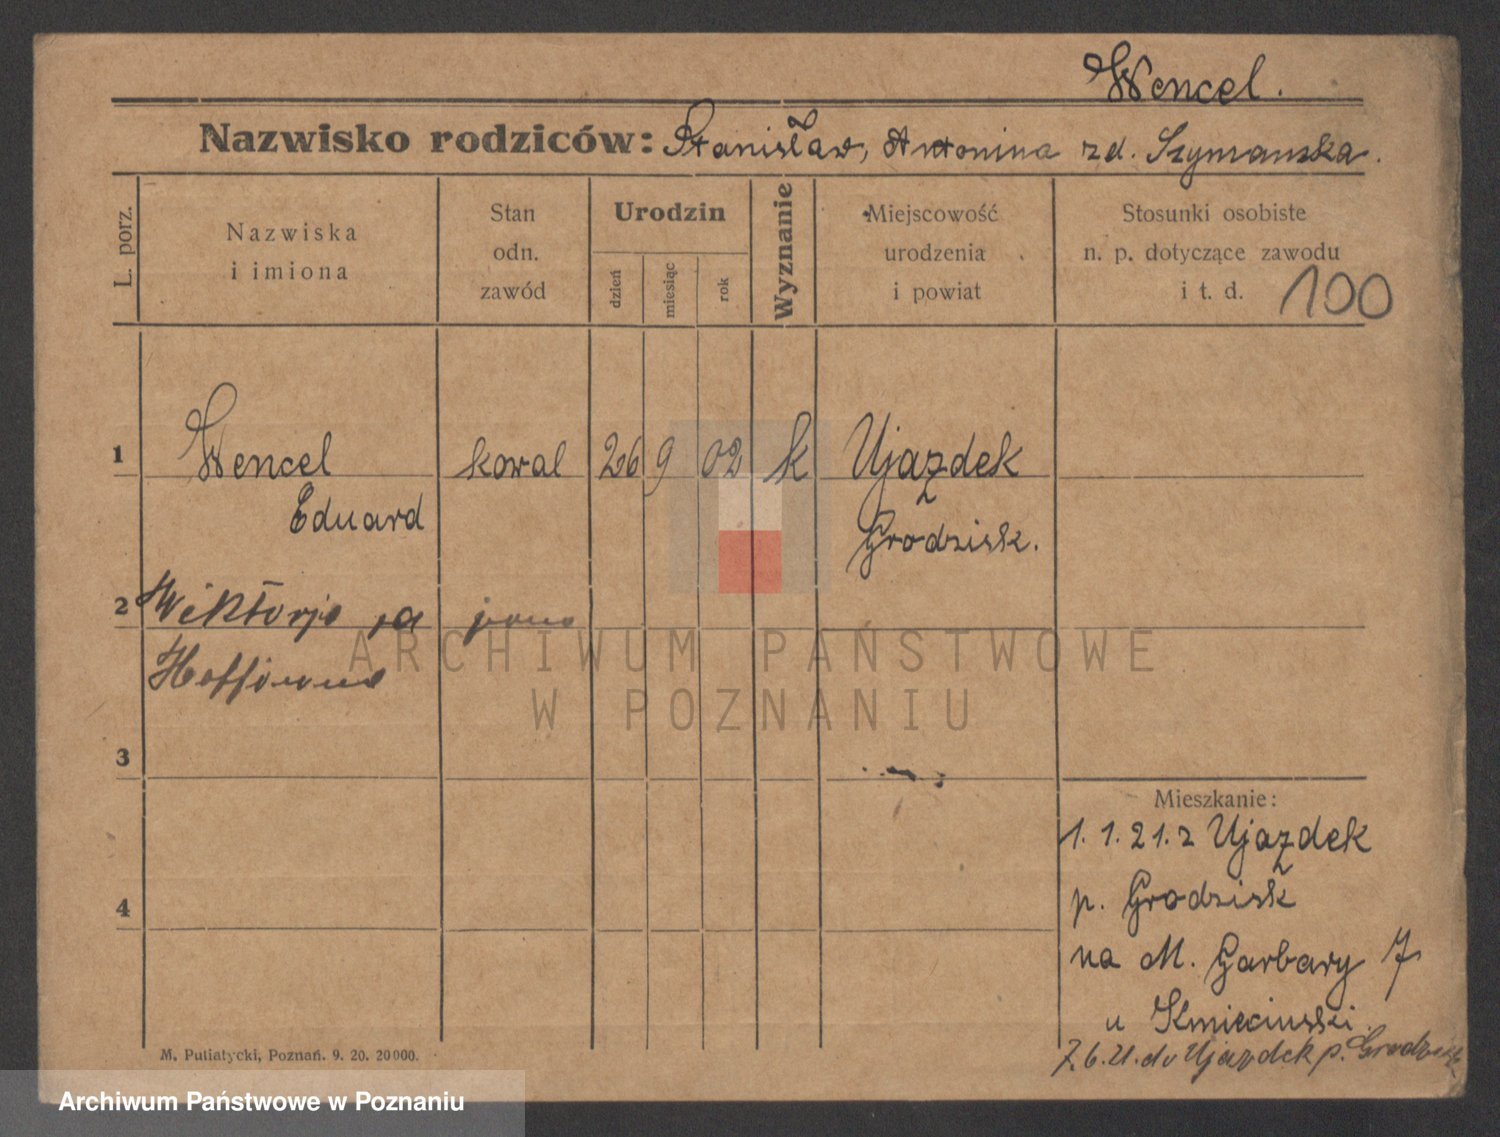 Wencel.
Nazwisko rodziców: Stanisław, Antonina zd. Szymanska.
L. porz.
Nazwiska
i imiona
Stan
odn.
zawód
Urodzin
dzień
miesiąc
rok
Wyznanie
Miejscowość
urodzenia
i powiat
Stosunki osobiste
n. p. dotyczące zawodu
i t. d.
100
1 Wencel kowal 26 9 02 k Ujazdek
Eduard Grodzisk.
2 Wiktorja
3
4
Mieszkanie:
1. 1. 21. z Ujazdek
p. Grodzisk
na M. Garbary 7
u Kmieciński.
7.6.21. do Ujazdek p. Grodzisk
M. Putiatycki, Poznań. 9. 20. 20000.
ARCHIWUM PAŃSTWOWE
W POZNANIU
Archiwum Państwowe w Poznaniu